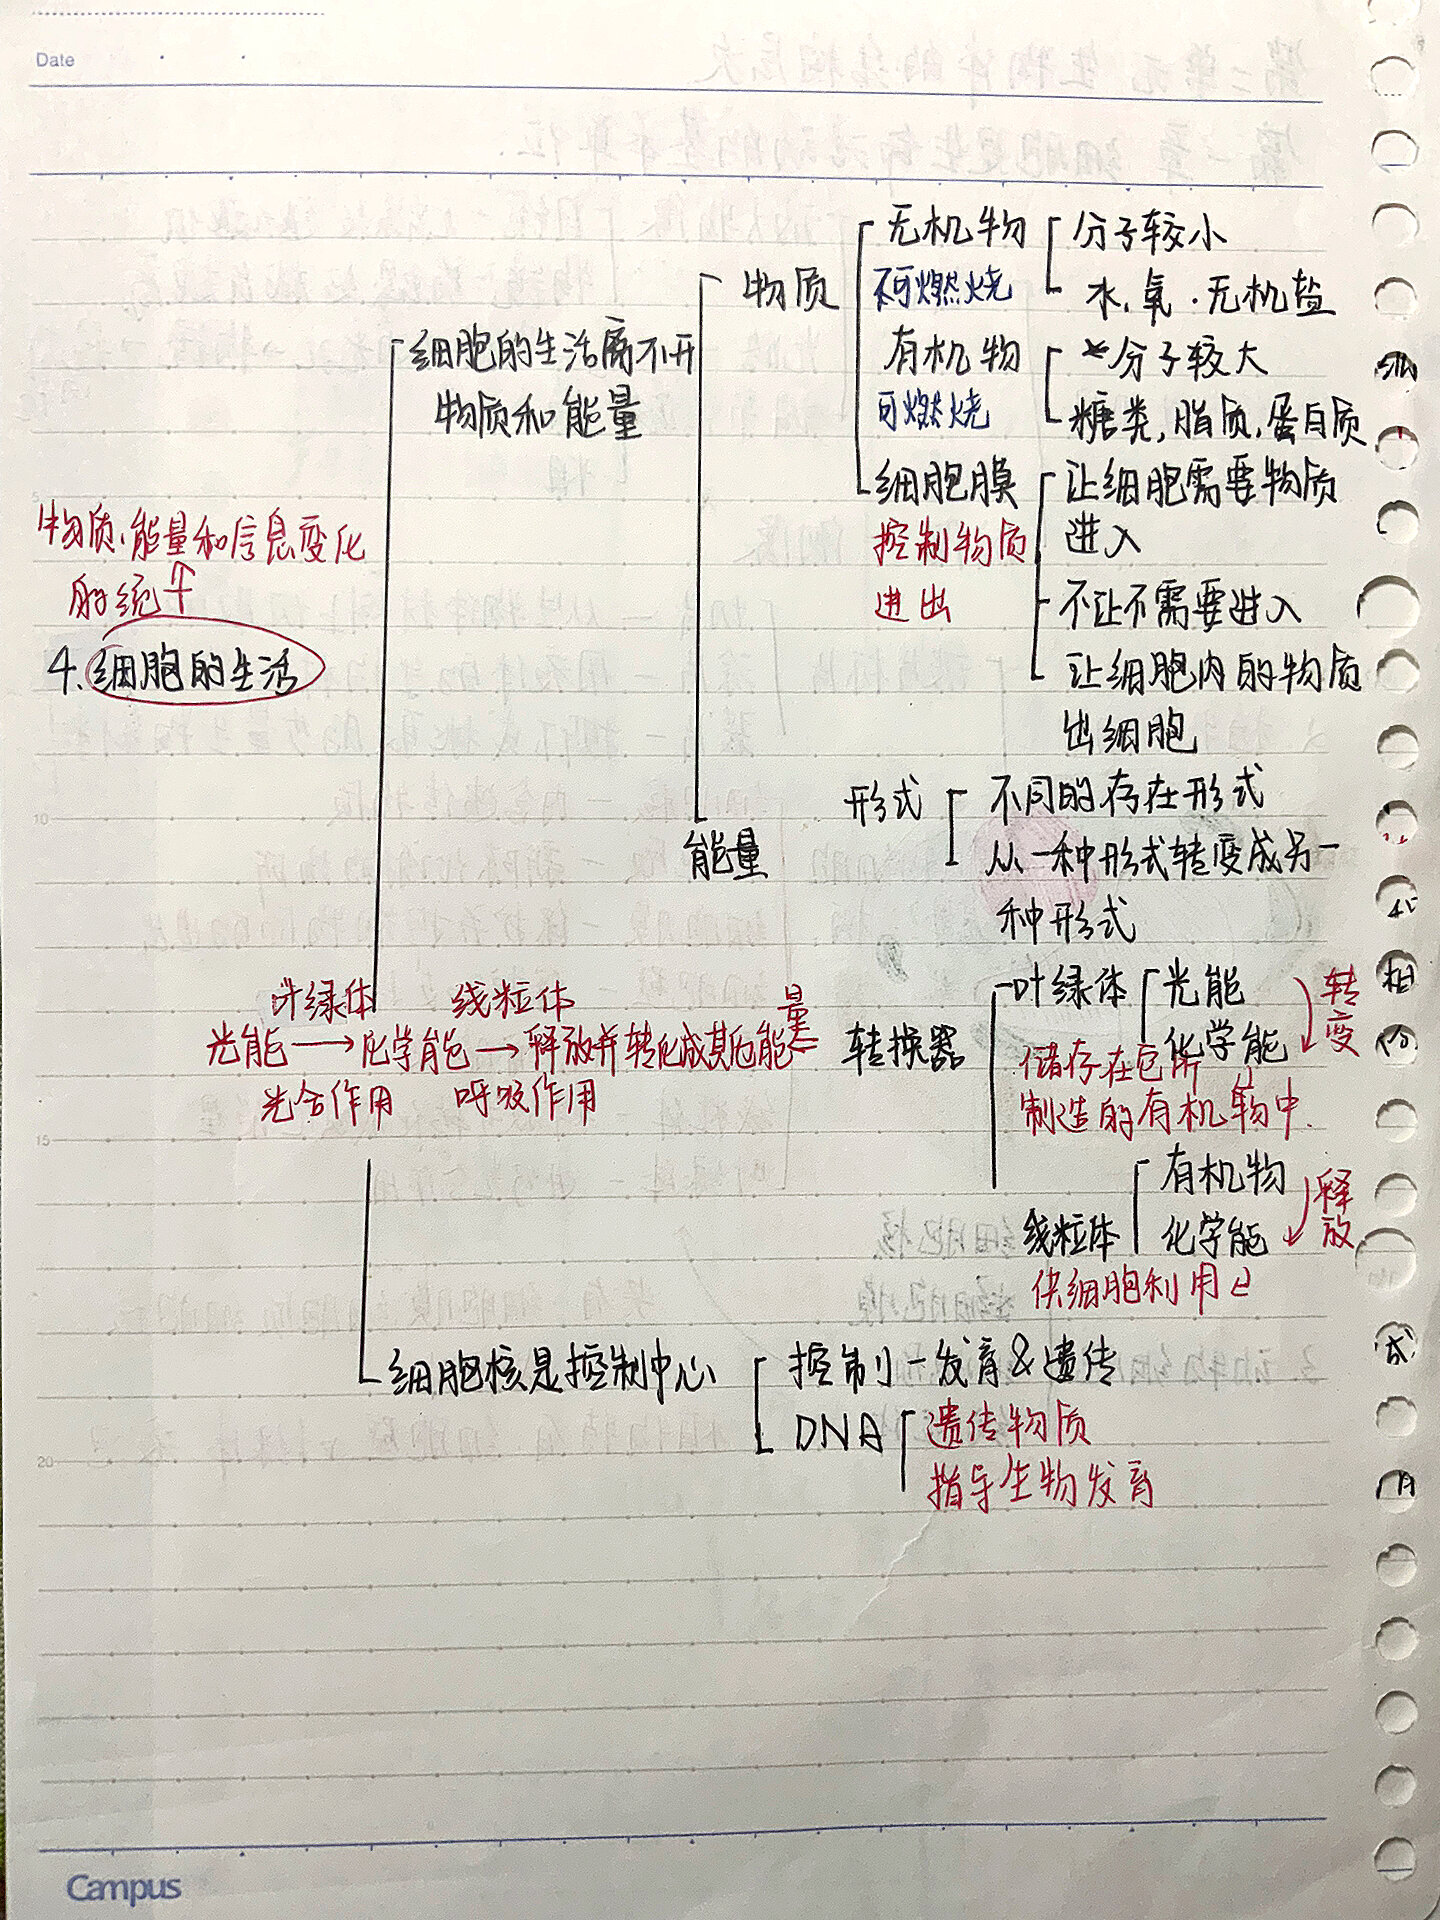 Date
无机物
分子较小
不可燃烧
水、氧、无机盐
物质
有机物
分子较大
可燃烧
糖类,脂质,蛋白质
细胞的生活离不开
物质和能量
细胞膜
控制物质
进出
让细胞需要物质
进入
不让不需要进入
让细胞内的物质
出细胞
物质、能量和信息变化
的统一
4.细胞的生活
能量
形式
不同的存在形式
从一种形式转变成另一
种形式
转换器
叶绿体
光能
化学能
转变
储存在它所
制造的有机物中.
线粒体
有机物
化学能
释放
供细胞利用
叶绿体
线粒体
光能→化学能→释放并转化成其他能量
光合作用
呼吸作用
细胞核是控制中心
控制-发育&遗传
DNA
遗传物质
指导生物发育
5
10
15
20
Campus